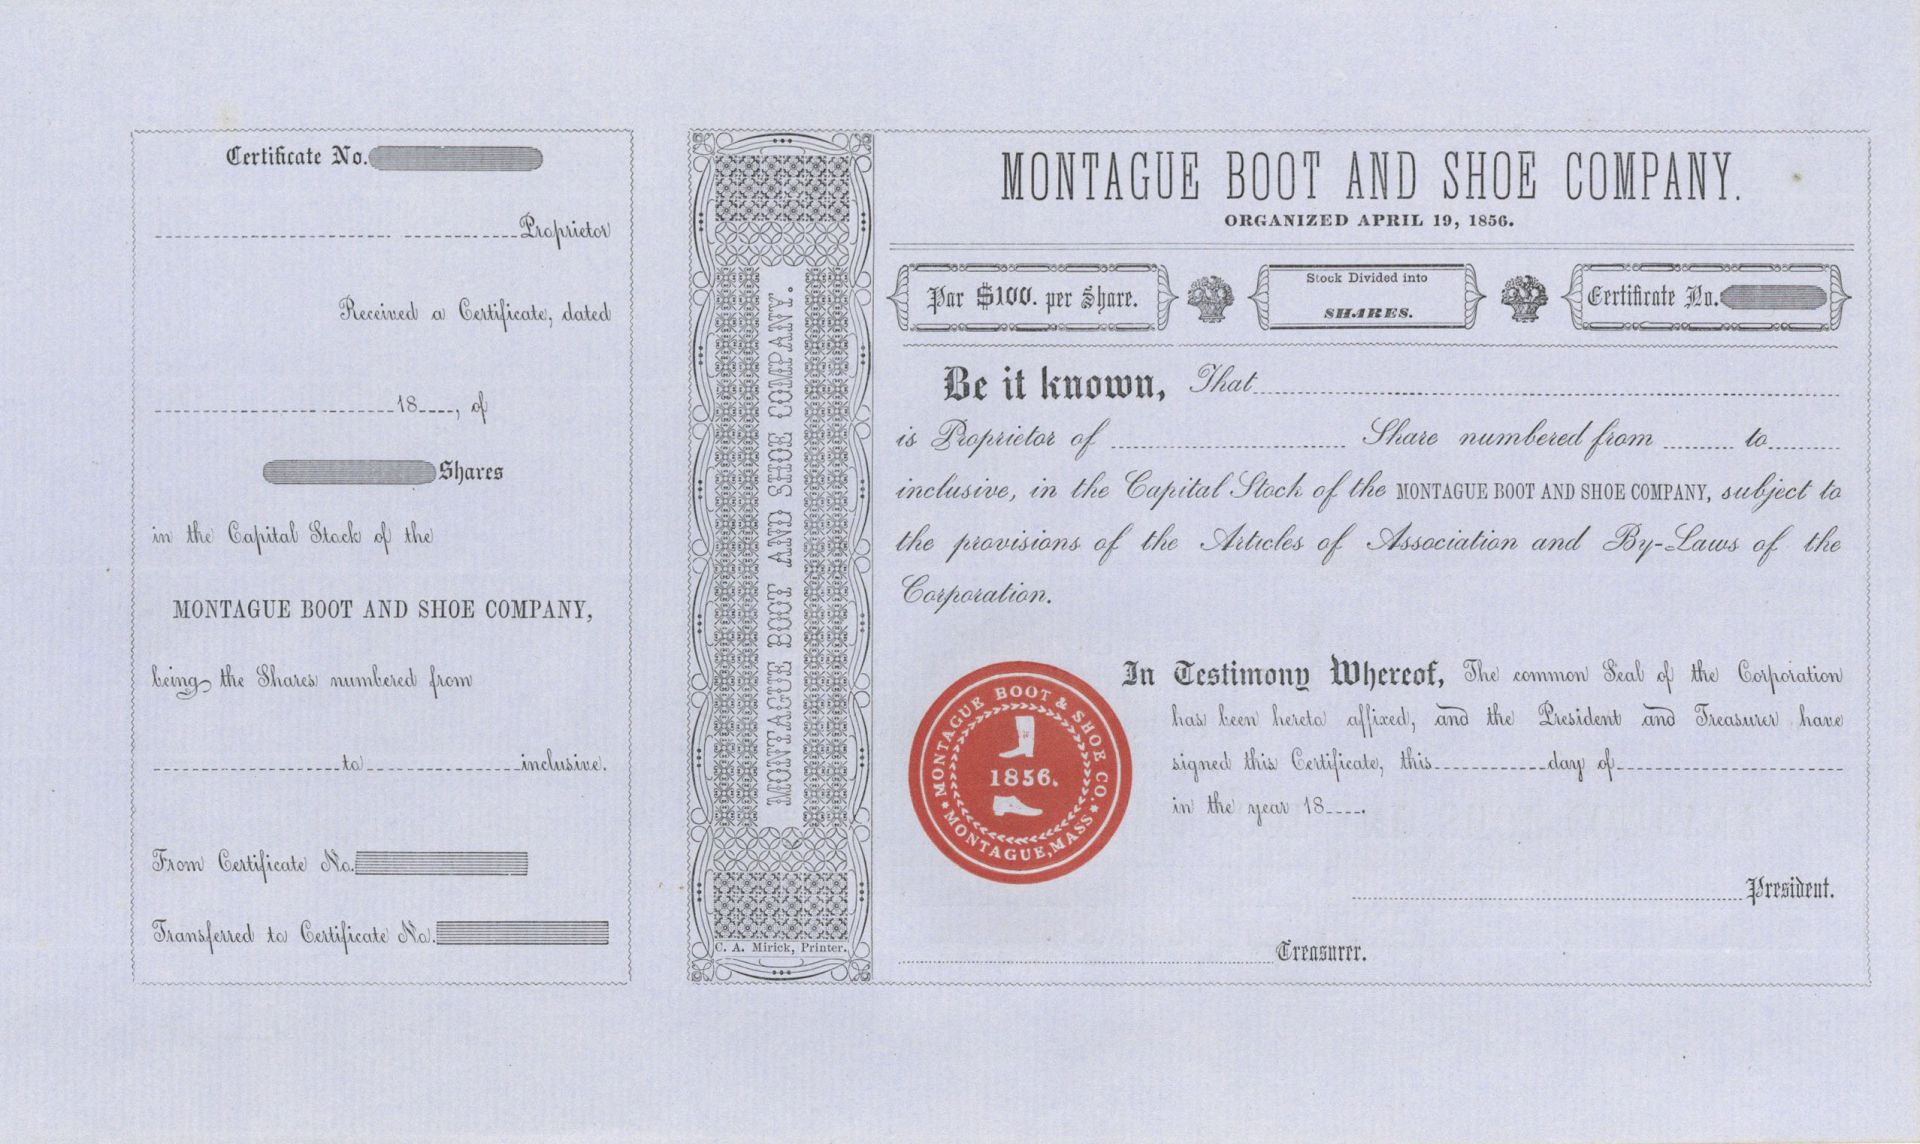 Certificate No.
Proprietor
Received a Certificate, dated
18 , of
Shares
in the Capital Stock of the
MONTAGUE BOOT AND SHOE COMPANY,
being the Shares numbered from
to inclusive.
From Certificate No.
Transferred to Certificate No.
MONTAGUE BOOT AND SHOE COMPANY.
C. A. Mirick, Printer.
MONTAGUE BOOT AND SHOE COMPANY.
ORGANIZED APRIL 19, 1856.
Par $100. per Share.
Stock Divided into
SHARES.
Certificate No.
Be it known, That
is Proprietor of Share numbered from to
inclusive, in the Capital Stock of the MONTAGUE BOOT AND SHOE COMPANY, subject to
the provisions of the Articles of Association and By-Laws of the
Corporation.
MONTAGUE BOOT & SHOE CO.
1856.
MONTAGUE, MASS.
In Testimony Whereof, The common Seal of the Corporation
has been hereto affixed, and the President and Treasurer have
signed this Certificate, this day of
in the year 18 .
President.
Treasurer.